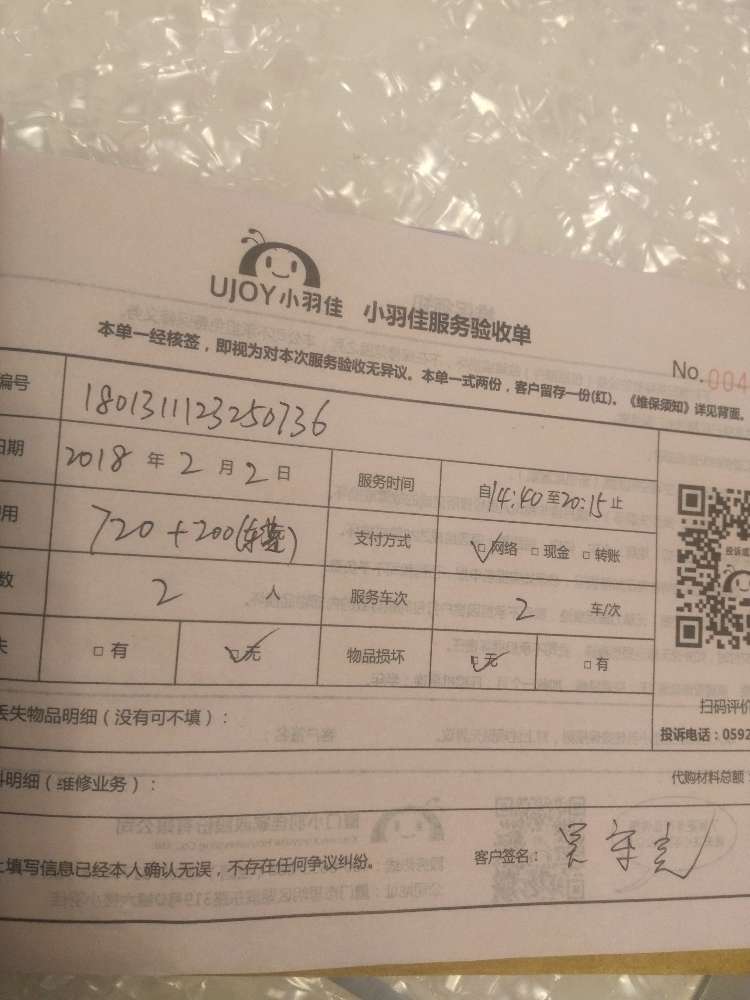 UJOY小羽佳 小羽佳服务验收单
本单一经核签，即视为对本次服务验收无异议。本单一式两份，客户留存一份(红)。《维保须知》详见背面。
No.004
编号 1801311123250736
日期 2018 年 2 月 2 日 服务时间 自14:40至20:15止
用 720+200(车费) 支付方式 ☑网络 □现金 □转账
数 2 人 服务车次 2 车/次
失 □有 ☑无 物品损坏 ☑无 □有
丢失物品明细（没有可不填）：
扫码评价
投诉电话：0592
料明细（维修业务）：
代购材料总额：
上填写信息已经本人确认无误，不存在任何争议纠纷。 客户签名：